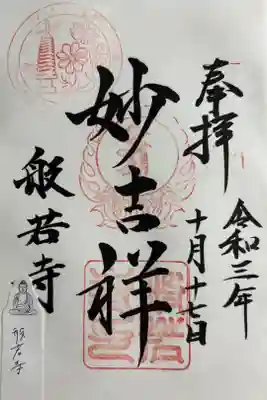 奉拝
令和三年
十月十七日
妙吉祥
般若寺
般若寺